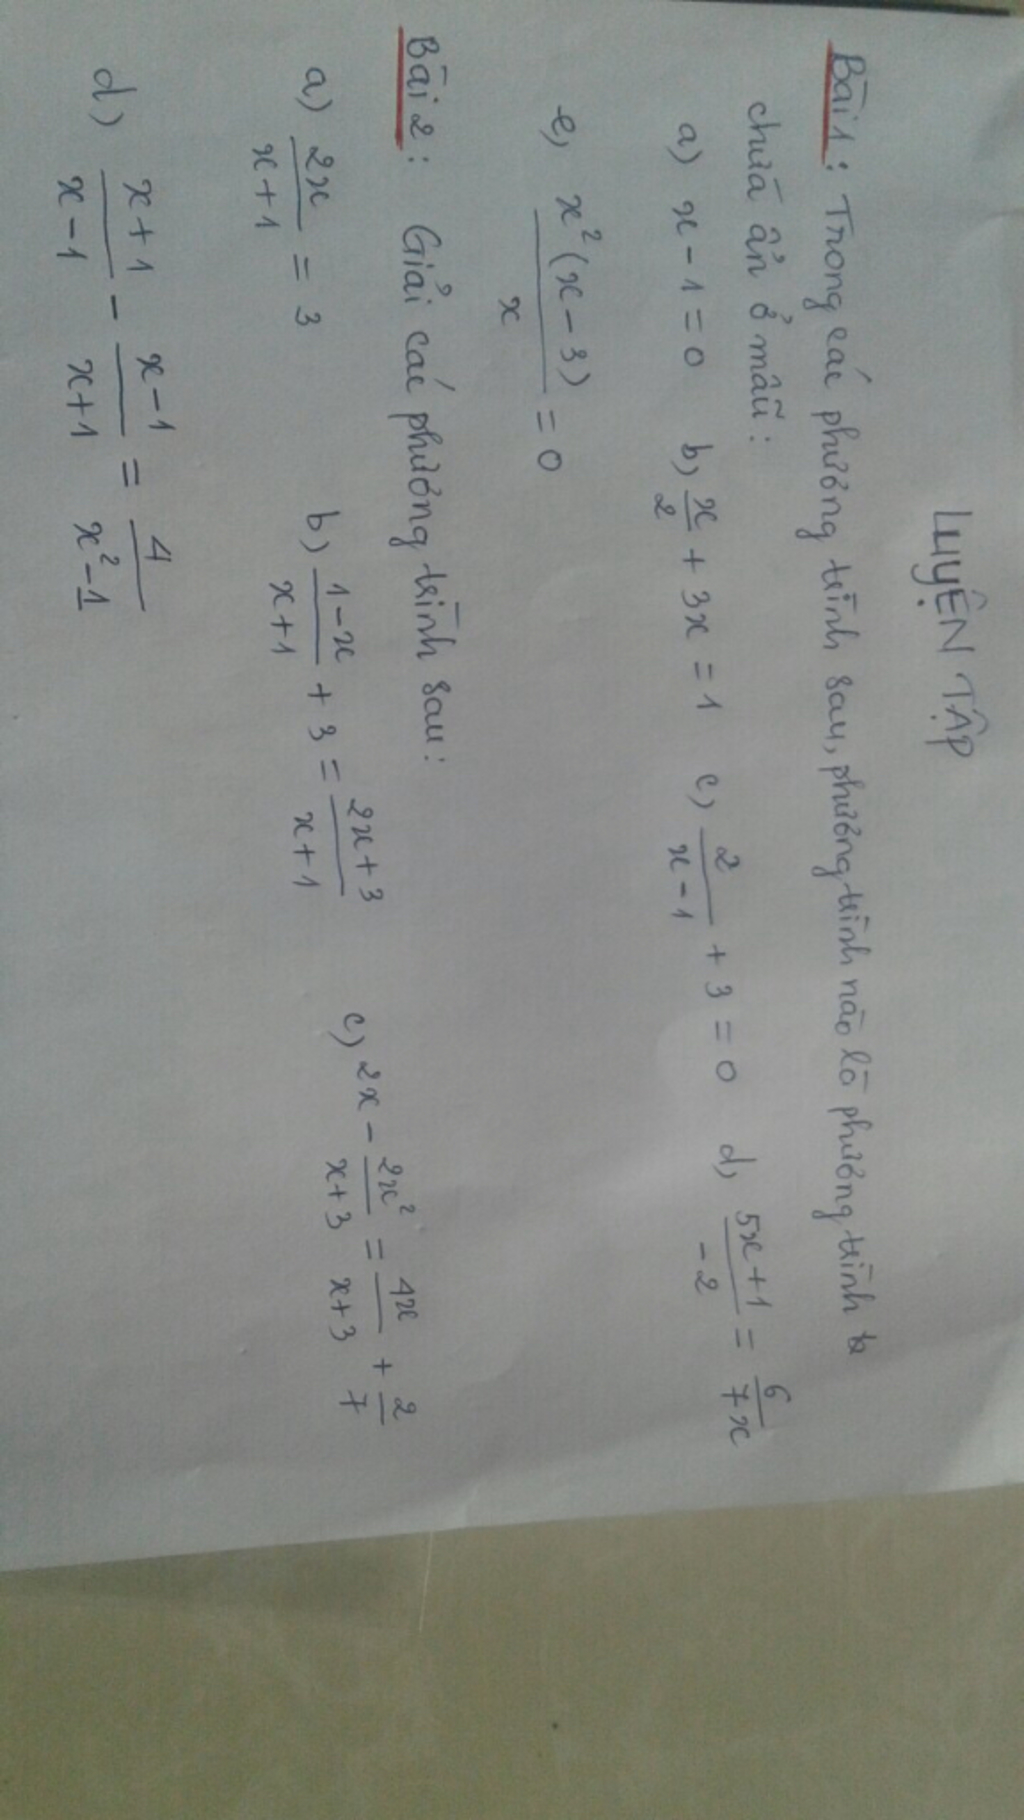 LUYỆN TẬP
Bài 1: Trong các phương trình sau, phương trình nào là phương trình
chứa ẩn ở mẫu:
a) x - 1 = 0 b) x/2 + 3x = 1 c) 2/(x-1) + 3 = 0 d, (5x+1)/-2 = 6/7x
e, x²(x-3)/x = 0
Bài 2: Giải các phương trình sau:
a) 2x/(x+1) = 3 b) (1-x)/(x+1) + 3 = (2x+3)/(x+1) c) 2x - 2x²/(x+3) = 4x/(x+3) + 2/7
d) (x+1)/(x-1) - (x-1)/(x+1) = 4/(x²-1)